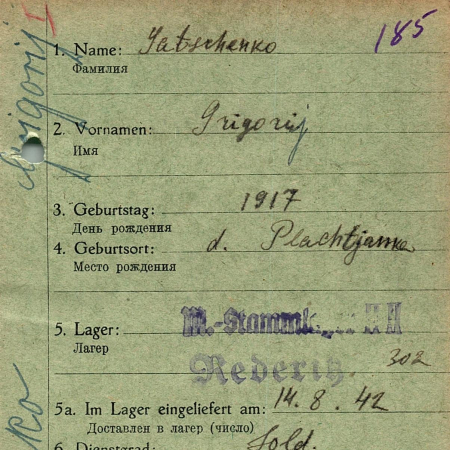 185
Grigorij I
1. Name: Jatschenko
Фамилия
2. Vornamen: Grigorij
Имя
3. Geburtstag: 1917
День рождения
4. Geburtsort: d. Plachtjanka
Место рождения
5. Lager: M.-Stammlager II H
Лагер
Rederitz.
302
5a. Im Lager eingeliefert am: 14. 8. 42
Доставлен в лагер (число)
6. Dienstgrad: Sold.
ko